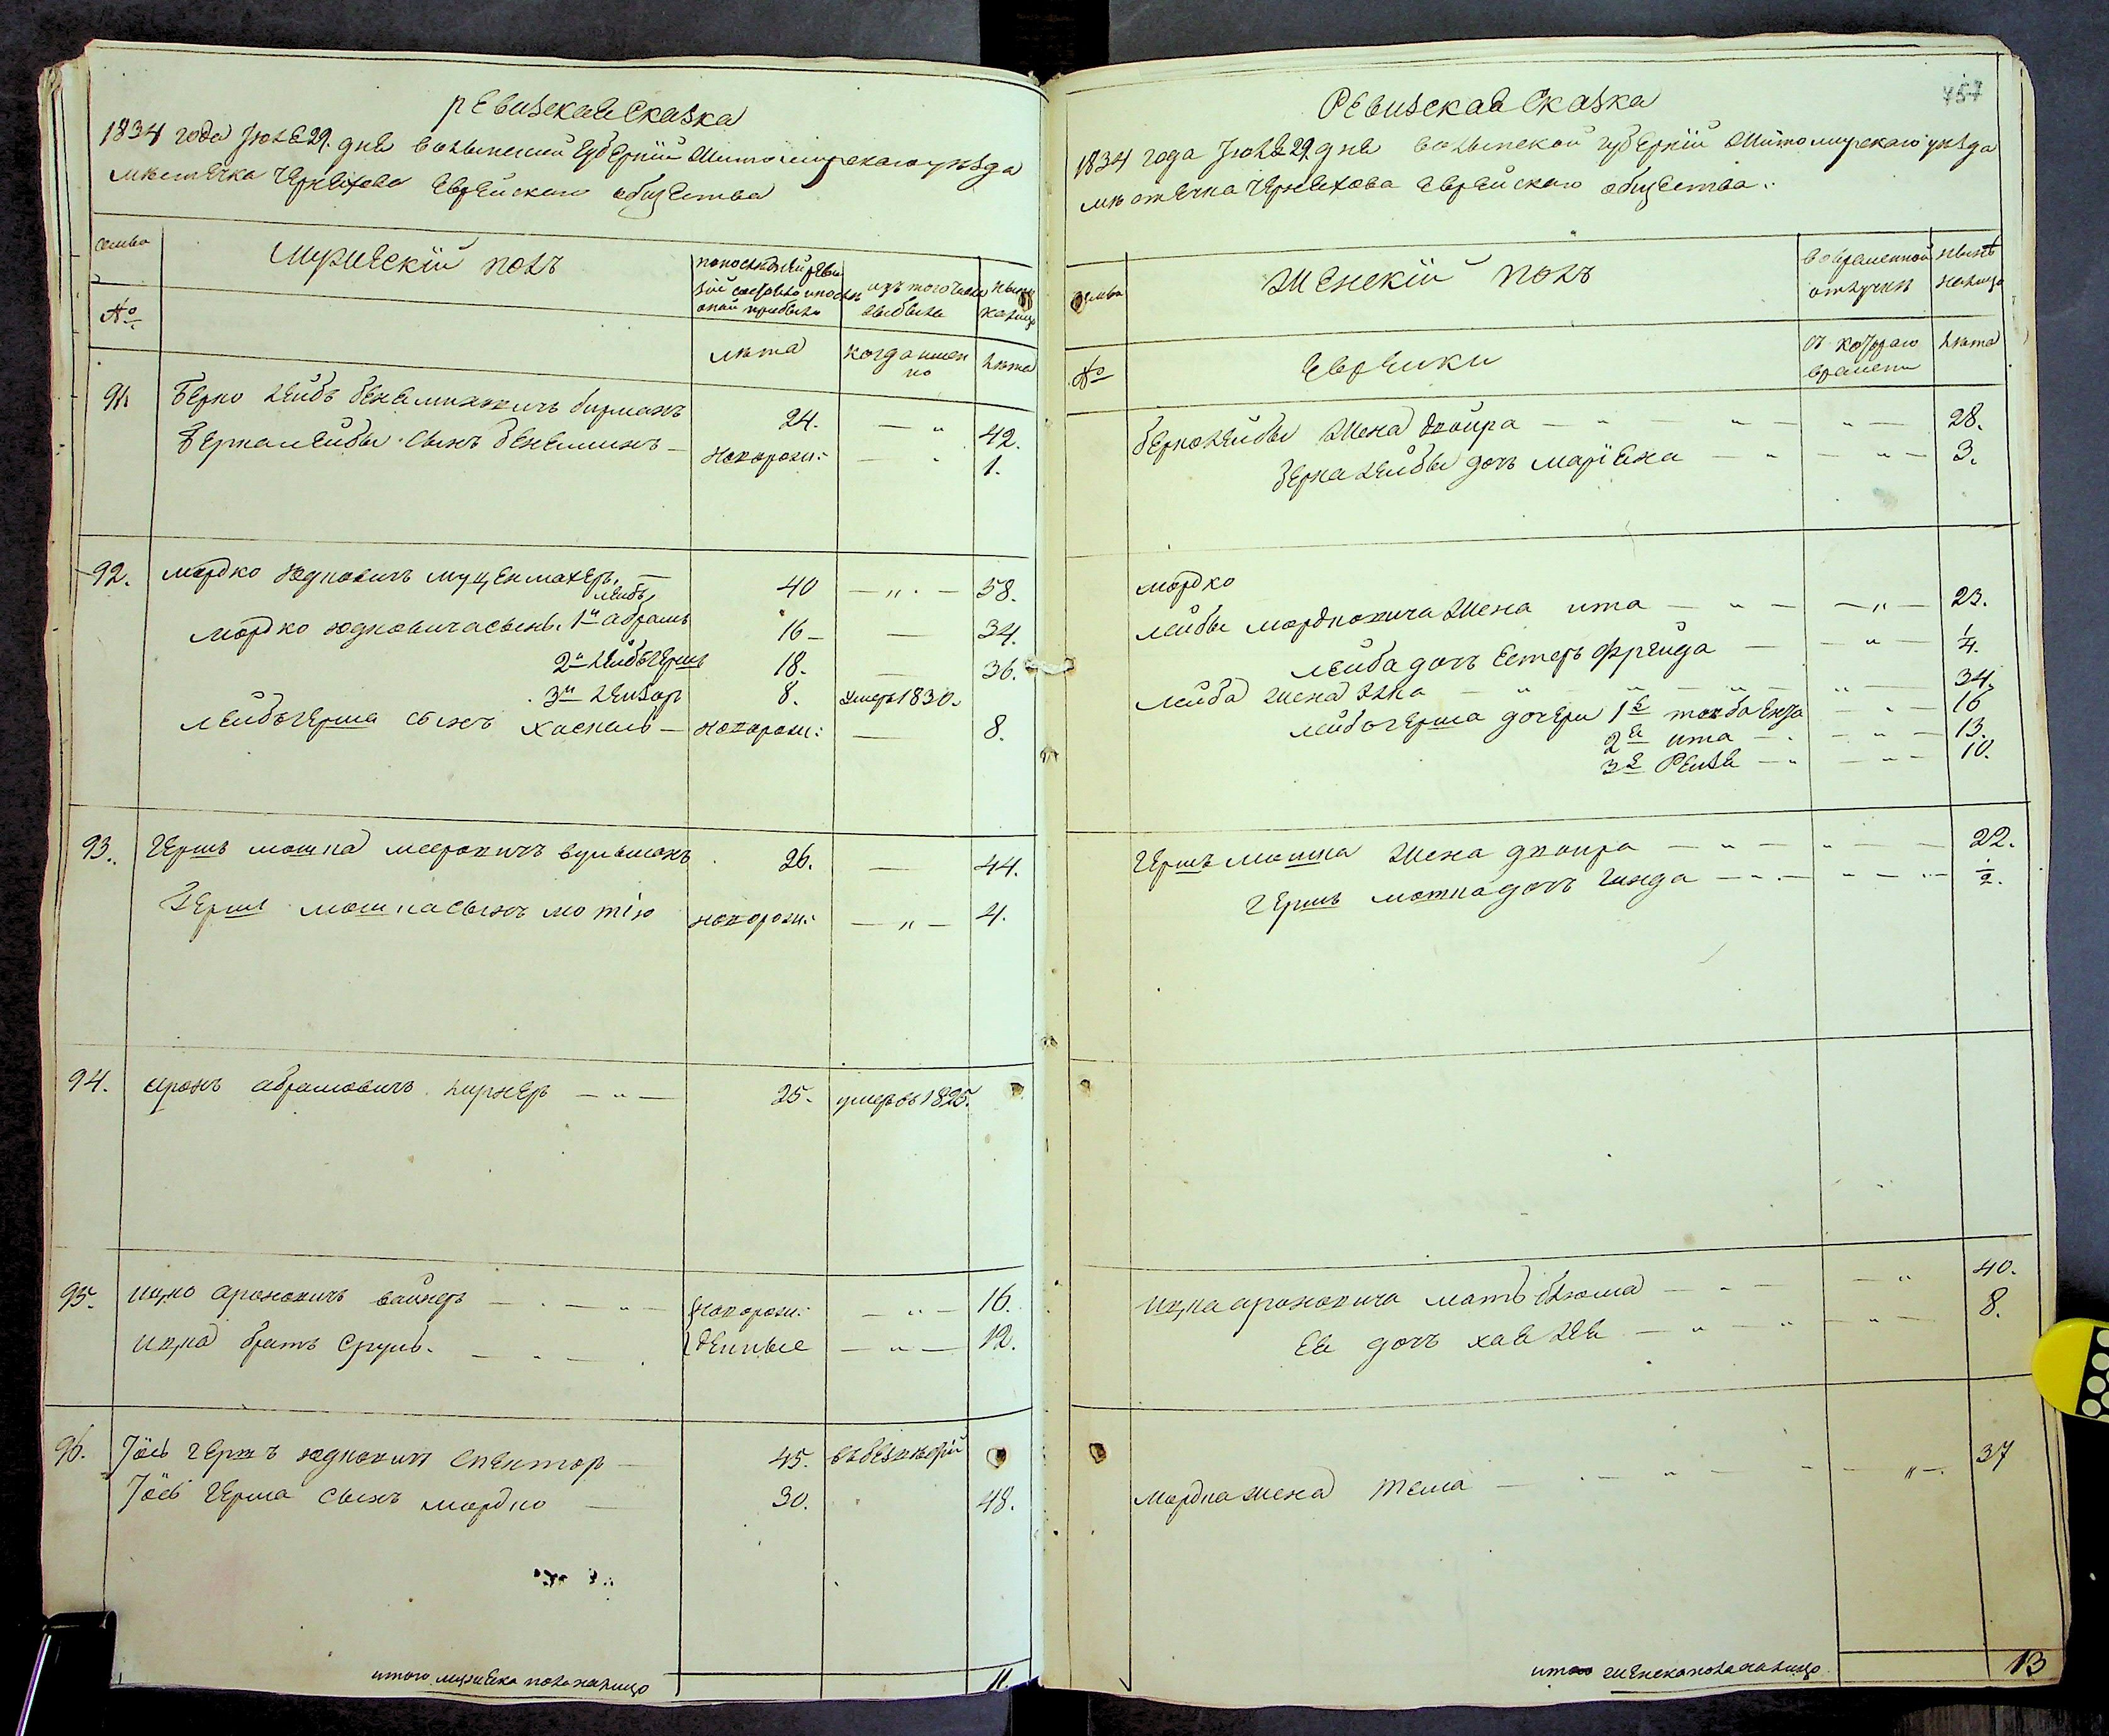 Ревизская сказка
1834 года Июля 29. дня Волынской губернии Житомирского уезда
местечка Черняхова Еврейского общества
семья
№
Мужеский полъ
по последней ревизии состояло и после оной прибыло
изъ того числа выбыло
ныне налицо
лета
когда именно
лета
91. Берко Лейбъ Беняминовичъ бирманъ 24. — „ 42.
Берка Лейбы сынъ Бенеминъ — новорожд: — „ 1.
92. Мордко Юдковичъ муценмахеръ. — 40 — „ — 58.
Мордко Юдковича сыны. 1й абрамъ лейбъ 16 — — 34.
2й Лейбъ Гершъ 18. — 36.
3й Лейзоръ 8. умеръ 1830.
Лейбъ Герша сынъ Хаскель — новорожд: — 8.
93. Гершъ Мошка Мееровичъ вульманъ 26. — 44.
Гершъ Мошка сынъ мотiю новорожд: — „ — 4.
94. Аронъ Абрамовичъ лирнеръ — „ — 25. умеръ въ 1825.
95. Ицко Ароновичъ вайнеръ — „ — новорож: — „ — 16.
Ицка братъ Сруль. — „ — денные — „ — 12.
96. Iосъ Гершъ Юдковичъ Спекторъ — 45. въ безвести
Iосъ Герша сынъ Мордко — 30. 48.
итого мужеска пола налицо 11.
757
Ревизская Сказка
1834 года Июля 29. дня Волынской губернiи Житомирского уезда
местечка Черняхова Еврейского общества.
семья
№
Женскiй полъ
Еврейки
во временной отлучке
съ которого времени
ныне налицо
лета
Берко Лейбы жена двойра — „ — „ — 28.
Берка Лейбы дочь Марiена — „ — „ — 3.
Мордко
Лейбы Мордковича жена ита — „ — „ — 23.
Лейба дочь Естеръ Фрейда — „ — 1/4.
Лейба жена Элка — „ — „ — 34.
Лейбъ Герша дочери 1я тойба Енза — „ — 16
2я ита — „ — 13.
3я Рейзя — „ — 10.
Гершъ Мошка жена двойра — „ — „ — 22.
Гершъ Мошка дочь Гинда — „ — „ — 1/2.
Ицка Ароновича мать блюма — „ — „ 40.
Ея дочь хая лея — „ — „ — 8.
Мордка жена тема — „ — „ — 37
итого женска пола налицо 13